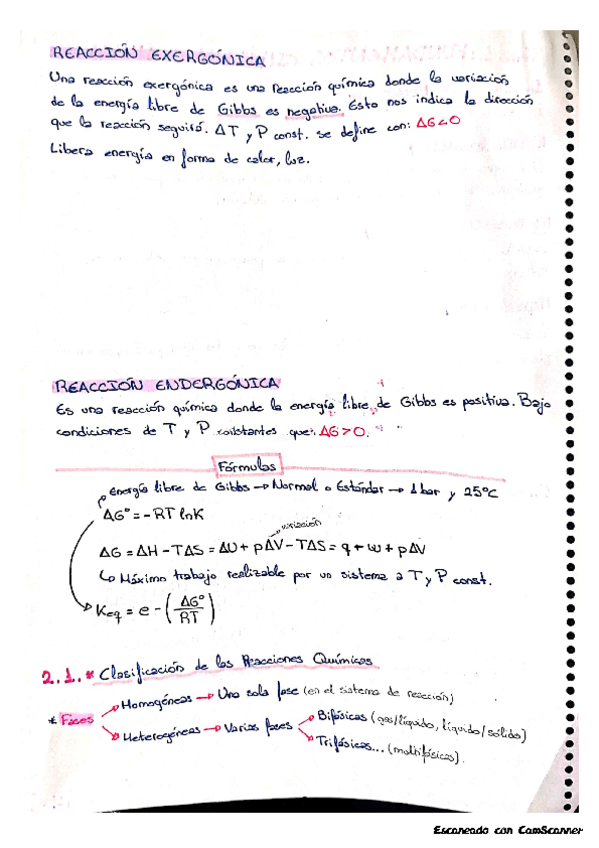 REACCIÓN EXERGÓNICA
Una reacción exergónica es una reacción química donde la variación
de la energía libre de Gibbs es negativa. Esto nos indica la dirección
que la reacción seguirá. A T y P const. se define con: ΔG<0
Libera energía en forma de calor, luz.
REACCIÓN ENDERGÓNICA
Es una reacción química donde la energía libre de Gibbs es positiva. Bajo
condiciones de T y P constantes que: ΔG>0.
Fórmulas
Energía libre de Gibbs → Normal o Estándar → 1 bar y 25ºC
ΔGº = -RT lnK
variación
ΔG = ΔH - TΔS = ΔU + pΔV - TΔS = q + w + pΔV
↳ Máximo trabajo realizable por un sistema a T y P const.
Keq = e - (ΔGº/RT)
2.1.* Clasificación de las Reacciones Químicas
* Fases
Homogéneas → Una sola fase (en el sistema de reacción)
Heterogéneas → Varias fases
Bifásicas (gas/líquido, líquido/sólido)
Trifásicas... (multifásicas).
Escaneado con CamScanner